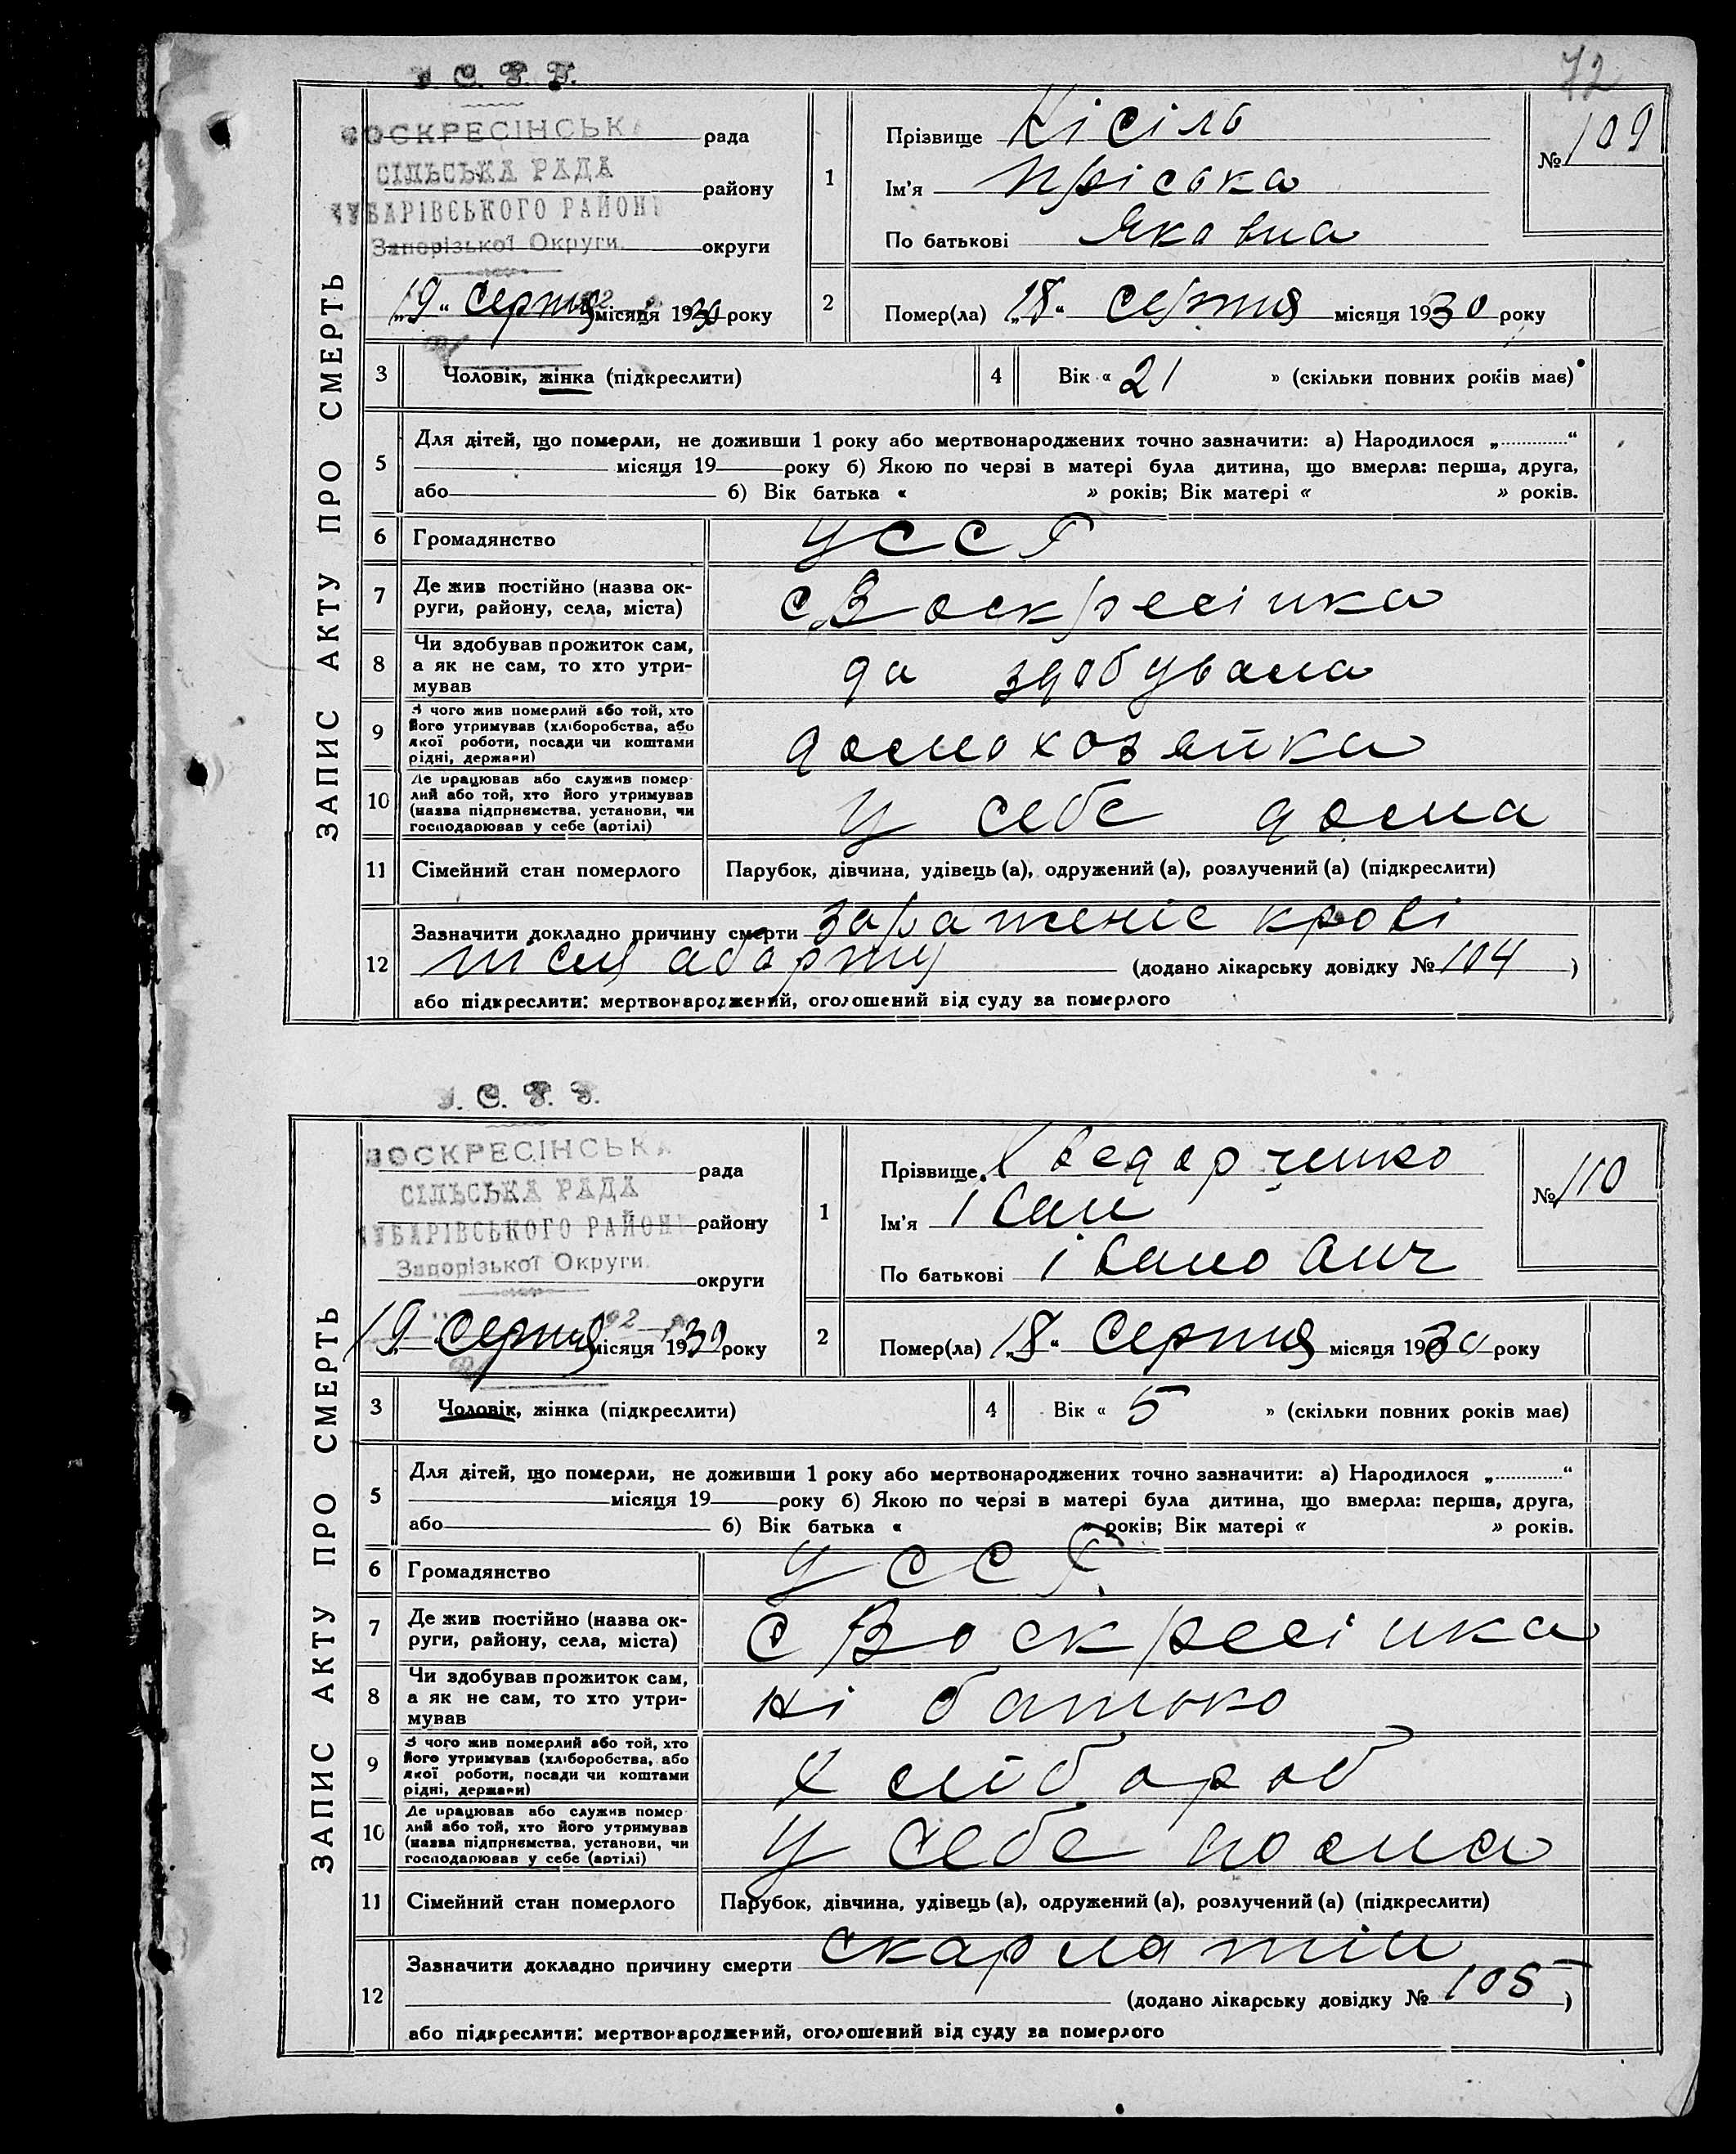 72
У. С. Р. Р.
ВОСКРЕСІНСЬКА рада
СІЛЬСЬКА РАДА
району
ЧУБАРІВСЬКОГО РАЙОНУ
Запорізької Округи округи
„19“ Серпня місяця 1930 року
ЗАПИС АКТУ ПРО СМЕРТЬ
1
Прізвище Кісіль
Ім'я Пріська
По батькові Яковна
№ 109
2
Помер(ла) „18“ Серпня місяця 1930 року
3
Чоловік, жінка (підкреслити)
4
Вік « 21 » (скільки повних років має)
5
Для дітей, що померли, не доживши 1 року або мертвонароджених точно зазначити: а) Народилося „.............“
місяця 19 року б) Якою по черзі в матері була дитина, що вмерла: перша, друга,
або б) Вік батька « » років; Вік матері « » років.
6
Громадянство УССР
7
Де жив постійно (назва ок-
руги, району, села, міста)
с Воскресінка
8
Чи здобував прожиток сам,
а як не сам, то хто утри-
мував
да здобувала
9
З чого жив померлий або той, хто
його утримував (хліборобства, або
якої роботи, посади чи коштами
рідні, держави)
домохозяйка
10
Де працював або служив помер-
лий або той, хто його утримував
(назва підприємства, установи, чи
господарював у себе (артілі)
У себе дома
11
Сімейний стан померлого
Парубок, дівчина, удівець (а), одружений (а), розлучений (а) (підкреслити)
12
Зазначити докладно причину смерти зараженіє крові
після аборту (додано лікарську довідку № 104 )
або підкреслити: мертвонароджений, оголошений від суду за померлого
У. С. Р. Р.
ВОСКРЕСІНСЬКА рада
СІЛЬСЬКА РАДА
ЧУБАРІВСЬКОГО РАЙОНУ району
Запорізької Округи.
округи
19 Серпня місяця 1930 року
ЗАПИС АКТУ ПРО СМЕРТЬ
1
Прізвище Хведорченко
Ім'я Іван
По батькові Іванович
№ 110
2
Помер(ла) „18“ Серпня місяця 1930 року
3
Чоловік, жінка (підкреслити)
4
Вік « 5 » (скільки повних років має)
5
Для дітей, що померли, не доживши 1 року або мертвонароджених точно зазначити: а) Народилося „.............“
місяця 19 року б) Якою по черзі в матері була дитина, що вмерла: перша, друга,
або б) Вік батька « » років; Вік матері « » років.
6
Громадянство УССР
7
Де жив постійно (назва ок-
руги, району, села, міста)
с Воскресінка
8
Чи здобував прожиток сам,
а як не сам, то хто утри-
мував
ні батько
9
З чого жив померлий або той, хто
його утримував (хліборобства, або
якої роботи, посади чи коштами
рідні, держави)
хлібороб
10
Де працював або служив помер-
лий або той, хто його утримував
(назва підприємства, установи, чи
господарював у себе (артілі)
У себе дома
11
Сімейний стан померлого
Парубок, дівчина, удівець (а), одружений (а), розлучений (а) (підкреслити)
12
Зазначити докладно причину смерти скарлатін
(додано лікарську довідку № 105 )
або підкреслити: мертвонароджений, оголошений від суду за померлого